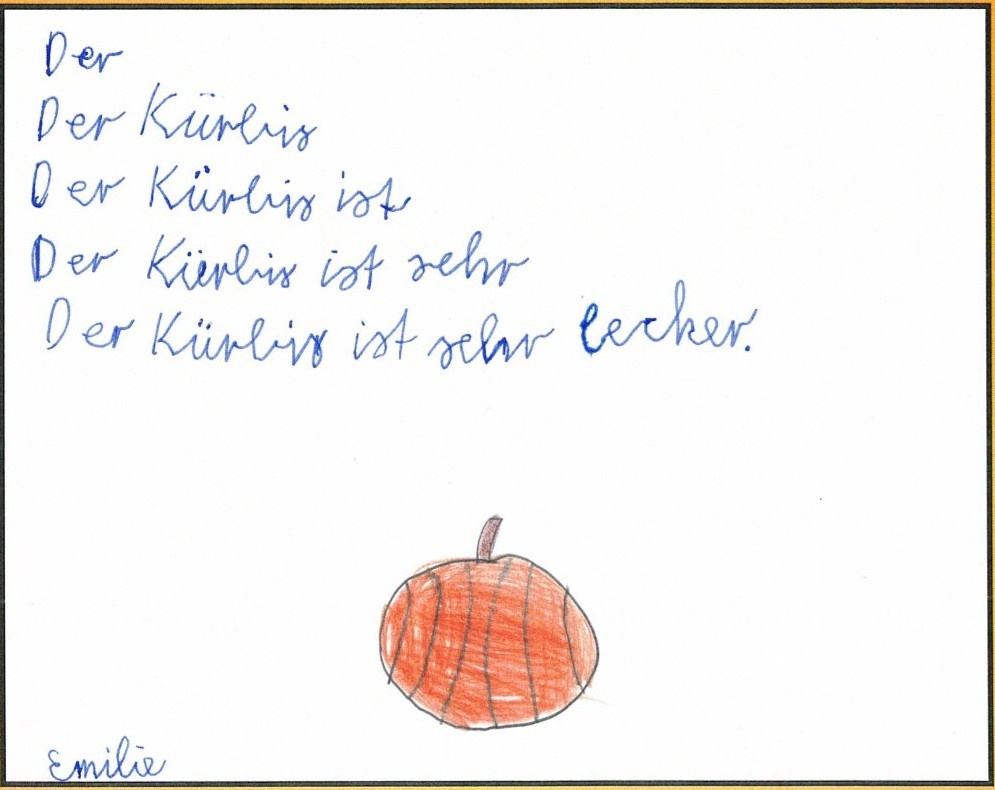 Der
Der Kürbis
Der Kürbis ist
Der Kürbis ist sehr
Der Kürbis ist sehr lecker.
Emilie